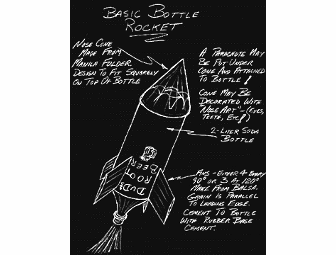 BASIC BOTTLE
ROCKET
NOSE CONE
MADE FROM
MANILA FOLDER
DESIGN TO FIT SQUARELY
ON TOP OF BOTTLE
A PARACHUTE MAY
BE PUT UNDER
CONE AND ATTACHED
TO BOTTLE!
CONE MAY BE
DECORATED WITH
"NOSE ART" - (EYES,
TEETH, ETC.)
2-LITER SODA
BOTTLE
DUDE
ROOT
BEER
FINS - EITHER 4 EVERY
90° OR 3 AT 120°
MADE FROM BALSA.
GRAIN IS PARALLEL
TO LEADING EDGE.
CEMENT TO BOTTLE
WITH RUBBER BASE
CEMENT.